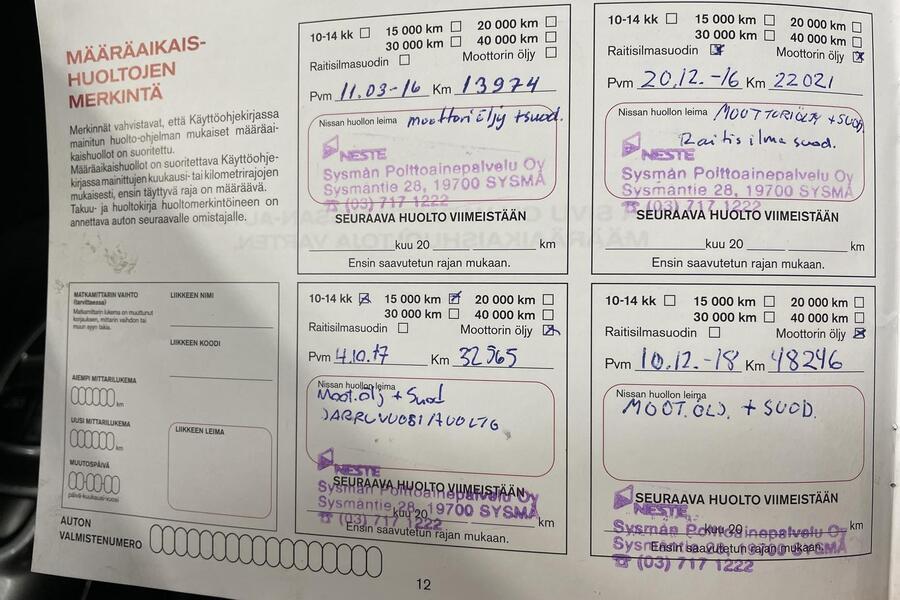 MÄÄRÄAIKAIS-
HUOLTOJEN
MERKINTÄ
Merkinnät vahvistavat, että Käyttöohjekirjassa
mainitun huolto-ohjelman mukaiset määräai-
kaishuollot on suoritettu.
Määräaikaishuollot on suoritettava Käyttöohje-
kirjassa mainittujen kuukausi- tai kilometrirajojen
mukaisesti, ensin täyttyvä raja on määräävä.
Takuu- ja huoltokirja huoltomerkintöineen on
annettava auton seuraavalle omistajalle.
10-14 kk 15 000 km 20 000 km
30 000 km 40 000 km
Raitisilmasuodin Moottorin öljy
Pvm 11.03-16 Km 13974
Nissan huollon leima moottoriöljy + suod.
NESTE
Sysmän Polttoainepalvelu Oy
Sysmäntie 28, 19700 SYSMÄ
☎ (03) 717 1222
SEURAAVA HUOLTO VIIMEISTÄÄN
kuu 20 km
Ensin saavutetun rajan mukaan.
10-14 kk 15 000 km 20 000 km
30 000 km 40 000 km
Raitisilmasuodin Moottorin öljy
Pvm 20.12.-16 Km 22021
Nissan huollon leima MOOTTORIÖLJY + SUOD.
Raitis ilma suod.
NESTE
Sysmän Polttoainepalvelu Oy
Sysmäntie 28, 19700 SYSMÄ
☎ (03) 717 1222
SEURAAVA HUOLTO VIIMEISTÄÄN
kuu 20 km
Ensin saavutetun rajan mukaan.
MATKAMITTARIN VAIHTO
(tarvittaessa)
Matkamittarin lukema on muuttunut
korjauksen, mittarin vaihdon tai
muun syyn takia.
AIEMPI MITTARILUKEMA
km
UUSI MITTARILUKEMA
km
MUUTOSPÄIVÄ
päivä-kuukausi-vuosi
LIIKKEEN NIMI
LIIKKEEN KOODI
LIIKKEEN LEIMA
AUTON
VALMISTENUMERO
10-14 kk 15 000 km 20 000 km
30 000 km 40 000 km
Raitisilmasuodin Moottorin öljy
Pvm 4.10.17 Km 32565
Nissan huollon leima
Moot.ölj + Suod
JARRUVUOSIHUOLTO
NESTE
SEURAAVA HUOLTO VIIMEISTÄÄN
Sysmän Polttoainepalvelu Oy
Sysmäntie 28, 19700 SYSMÄ
kuu 20 km
☎ (03) 717 1222
Ensin saavutetun rajan mukaan.
10-14 kk 15 000 km 20 000 km
30 000 km 40 000 km
Raitisilmasuodin Moottorin öljy
Pvm 10.12.-18 Km 48246
Nissan huollon leima
MOOT.ÖLJ. + SUOD.
SEURAAVA HUOLTO VIIMEISTÄÄN
NESTE
kuu 20 km
Sysmän Polttoainepalvelu Oy
Sysmäntie 28, 19700 SYSMÄ
Ensin saavutetun rajan mukaan.
☎ (03) 717 1222
12